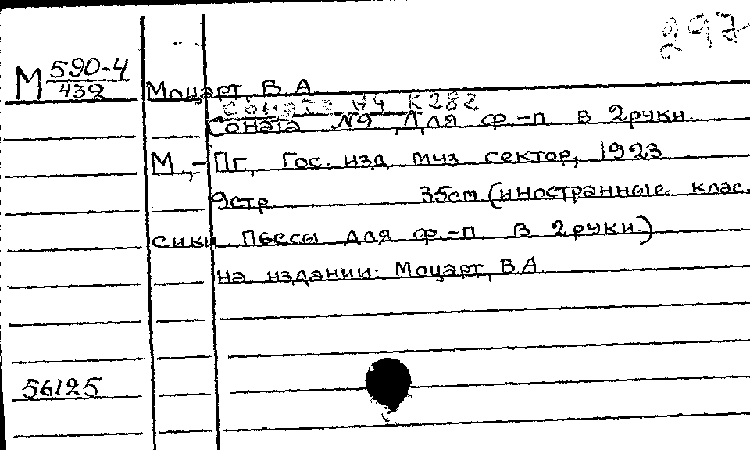 297
М 590-4/439
Моцарт, В.А
Соната №4 К 282
Соната №9 Для ф.-п в 2руки
М,-Пг, Гос. изд муз сектор, 1923
9стр 35cm (иностранные клас.
сики Пьесы для ф.-п в 2руки)
на издании: Моцарт, В.А
56125